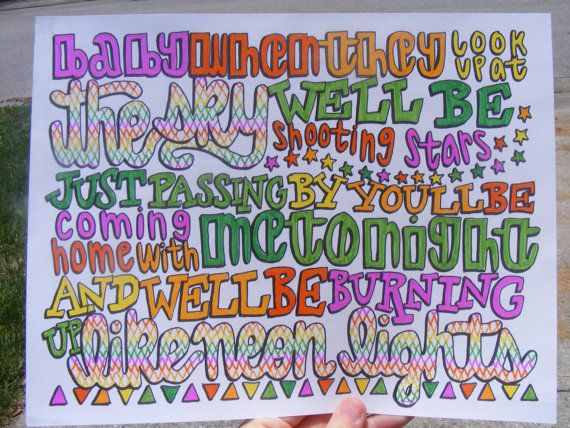 baby when they look up at
the sky WELL BE
shooting stars
JUST PASSING BY YOULL BE
coming home with me tonight
AND WELL BE BURNING
UP like neon lights